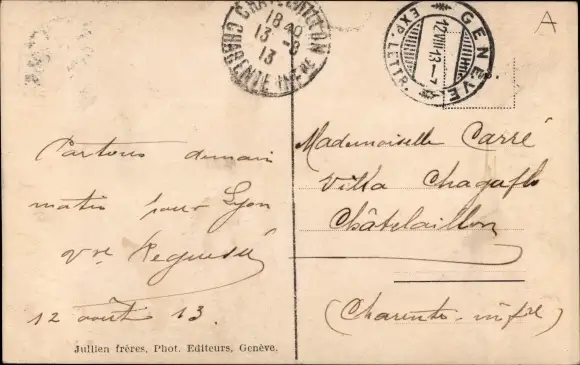 CHATELAILLON
18 40
13 - 8
13
CHARENTE INFRE
GENÈVE
12 VIII 13 - 7
EXP. LETTR.
A
Partons demain
matin pour Lyon
12 août 13.
Mademoiselle Carré
Villa
Châtelaillon
(Charente-infre)
Jullien frères, Phot. Editeurs, Genève.